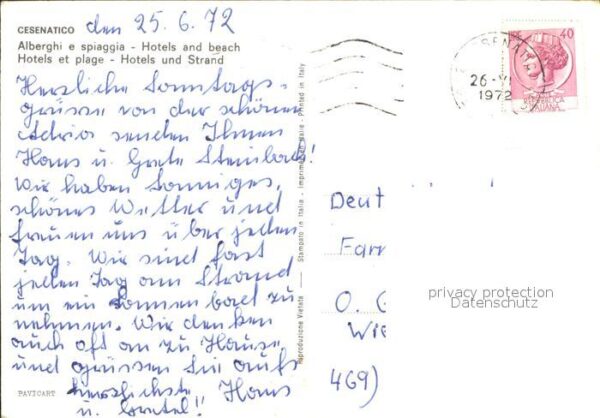 CESENATICO den 25.6.72
Alberghi e spiaggia - Hotels and beach
Hotels et plage - Hotels und Strand
Herzliche Sonntags-
grüsse von der schönen
Adria senden Ihnen
Hans u. Grete Steinbach!
Wir haben sonniges,
schönes Wetter und
freuen uns über jeden
Tag. Wir sind fast
jeden Tag am Strand
um ein Sonnenbad zu
nehmen. Wir denken
auch oft an zu Hause
und grüssen Sie aufs
herzlichste Hans
u. Gretel!!
PAVICART
Riproduzione Vietata — Stampato in Italia - Imprimé en Italie - Printed in Italy
26-VI
1972
40
REPUBBLICA
ITALIANA
Deut
Fam
O. G
Wie
469)
privacy protection
Datenschutz